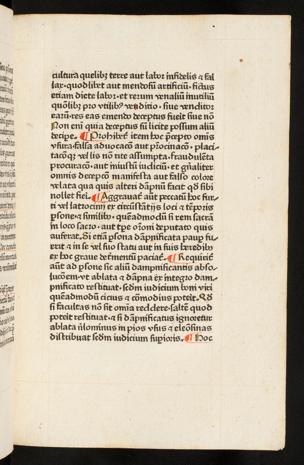 cultura quelibȝ terre aut labor infidelis ⁊ fal
lax·quodlibet aut mendosū artificiū· fictus
etiam diete labor·et rerum venaliū inutiliū
quoslibȝ pro vtilibꝰ vēditio· siue venditor
earū·res eas emendo deceptus fuerit siue nō
Non eni quia deceptus sū licite possum aliū
decipe. ¶ Prohibet item hoc p̄cepto omīs
vsura·falsa aduocacō aut p̄locutinacō· placi
tacōꝗ vel lis nō rite assumpta·fraudulēta
procuracō·aut iniustū iudiciū· et gn̄aliter
omnis deceptō manifesta aut falso colore
velata qua quis alteri dāpnū facit qd̄ sibi
nollet fieri. ¶ Aggrauat aūt peccatū hoc fur
ti vel latrocinii ex circūstātijs loci ⁊ tēporis
psone ⁊ similibꝰ· quēadmodū si rem sacrā
in loco sacro· aut tp̄e oīoni deputato quis
auferat. Si etiā psona dāpnificata paup fu
erit ⁊ in se vel suo statu aut in suis heredibꝰ
ex hoc graue detrimētū paciat̄. ¶ Requirit̄
aūt ad pfone sic aliū dampnificantis abso
lucōem·vt ablata ⁊ dāpna ex integro dam
nificato restituat· scdm iudicium boni viri
quēadmodū cicius ⁊ cōmodius poterit. Qd̄
si facultas nō sit omīa reddere·saltē quod
poterit restituat· ⁊ si dāpnificatus ignoretur
ablata nichilominus in pios vsus ⁊ eleōsinas
distribuat scdm iudicium supioris. ¶ Hoc